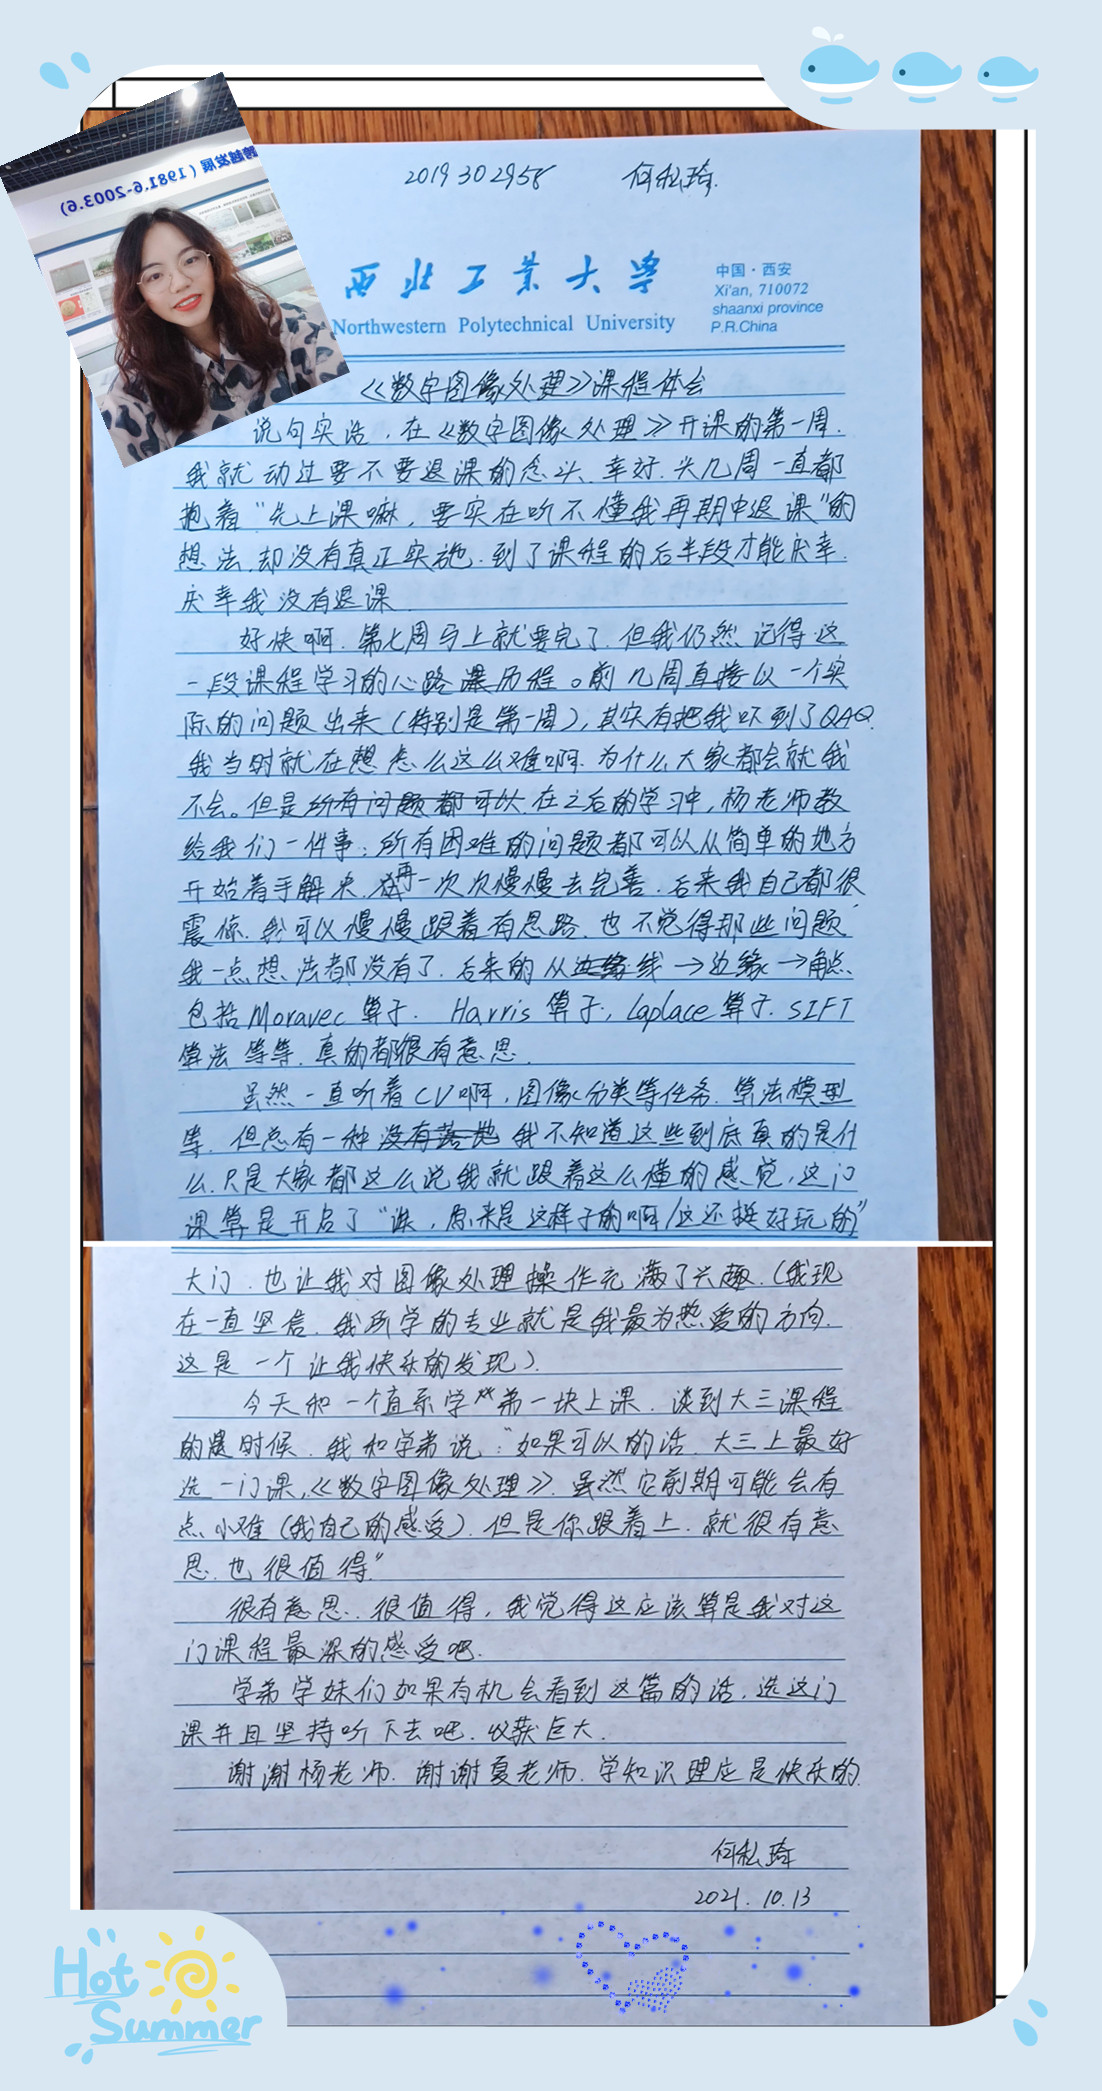 跨越发展 (1981.6-2003.6)
2019302958 何私琦
西北工业大学
Northwestern Polytechnical University
中国·西安
Xi'an, 710072
shaanxi province
P.R.China
《数字图像处理》课程体会
说句实话，在《数字图像处理》开课的第一周，
我就动过要不要退课的念头、幸好，头几周一直都
抱着“先上课嘛，要实在听不懂我再期中退课”的
想法，却没有真正实施，到了课程的后半段才能庆幸，
庆幸我没有退课．
好快啊，第七周马上就要完了，但我仍然记得这
一段课程学习的心路历程。前几周直接以一个实
际的问题出来（特别是第一周），其实有把我吓到了QAQ．
我当时就在想怎么这么难啊，为什么大家都会就我
不会。但是所有问题都可以在之后的学习中，杨老师教
给我们一件事：所有困难的问题都可以从简单的地方
开始着手解决，再一次次慢慢去完善．后来我自己都很
震惊，我可以慢慢跟着有思路，也不觉得那些问题
我一点想法都没有了．后来的从边缘线→边缘→角点
包括Moravec算子．Harris算子，Laplace算子．SIFT
算法等等．真的都很有意思．
虽然一直听着CV啊，图像分类等任务．算法模型
等，但总有一种没有落地我不知道这些到底真的是什
么，只是大家都这么说我就跟着这么懂的感觉，这门
课算是开启了“诶，原来是这样子的啊/这还挺好玩的”
大门．也让我对图像处理操作充满了兴趣．（我现
在一直坚信．我所学的专业就是我最为热爱的方向．
这是一个让我快乐的发现）．
今天和一个直系学弟一块上课．谈到大三课程
的时候．我和学弟说：“如果可以的话，大三上最好
选一门课，《数字图像处理》．虽然它前期可能会有
点小难（我自己的感受）．但是你跟着上．就很有意
思．也很值得”
很有意思．很值得，我觉得这应该算是我对这
门课程最深的感受吧．
学弟学妹们如果有机会看到这篇的话．选这门
课并且坚持听下去吧．收获巨大．
谢谢杨老师．谢谢夏老师．学知识理应是快乐的．
何私琦
2021.10.13
Hot
Summer